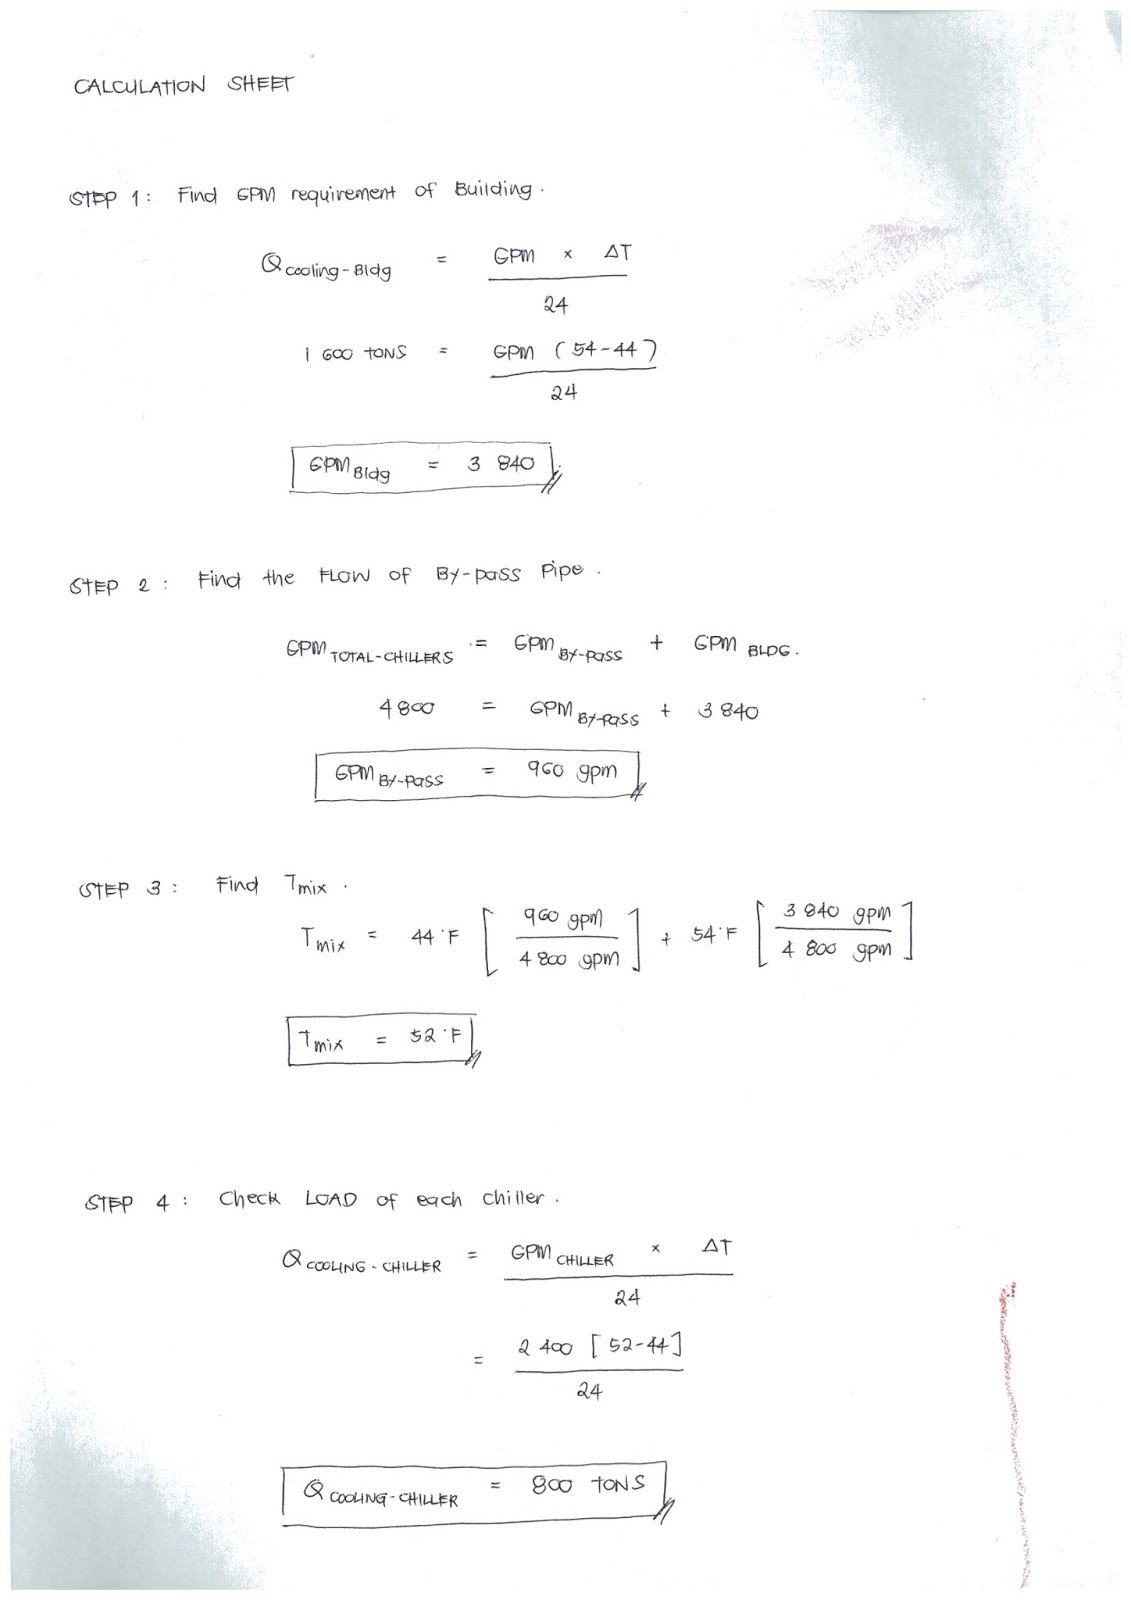 CALCULATION SHEET
STEP 1: Find GPM requirement of Building.
Q cooling-Bldg = GPM x ΔT
24
1 600 TONS = GPM (54-44)
24
GPM Bldg = 3 840
STEP 2: Find the FLOW of By-pass Pipe.
GPM TOTAL-CHILLERS = GPM By-pass + GPM BLDG.
4800 = GPM By-pass + 3 840
GPM By-pass = 960 gpm
STEP 3: Find Tmix.
Tmix = 44°F [ 960 gpm / 4 800 gpm ] + 54°F [ 3 840 gpm / 4 800 gpm ]
Tmix = 52°F
STEP 4: Check LOAD of each chiller.
Q COOLING-CHILLER = GPM CHILLER x ΔT
24
= 2 400 [52-44]
24
Q COOLING-CHILLER = 800 TONS